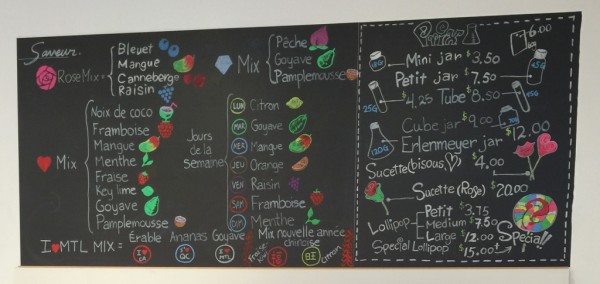 Saveur.
Rose Mix =
Bleuet
Mangue
Canneberge
Raisin
Mix
Pêche
Goyave
Pamplemousse
Mix
Noix de coco
Framboise
Mangue
Menthe
Fraise
Key lime
Goyave
Pamplemousse
Jours
de la
semaine
LUN Citron
MAR Goyave
MER Mangue
JEU Orange
VEN Raisin
SAM Framboise
DIM Menthe
I ♥ MTL MIX = Érable Ananas Goyave
Mix nouvelle année
chinoise
Citron
6.00
Mini jar $3.50
Petit jar $7.50
$4.25 Tube $8.50
25G
45G
Cube jar $9.00
$12.00
120G
Erlenmeyer jar
Sucette (bisous, ♡) $4.00
Sucette (Rose) $20.00
Lollipop
Petit $3.75
Medium $7.50
Large $12.00
Special Lollipop $15.00
Special!!